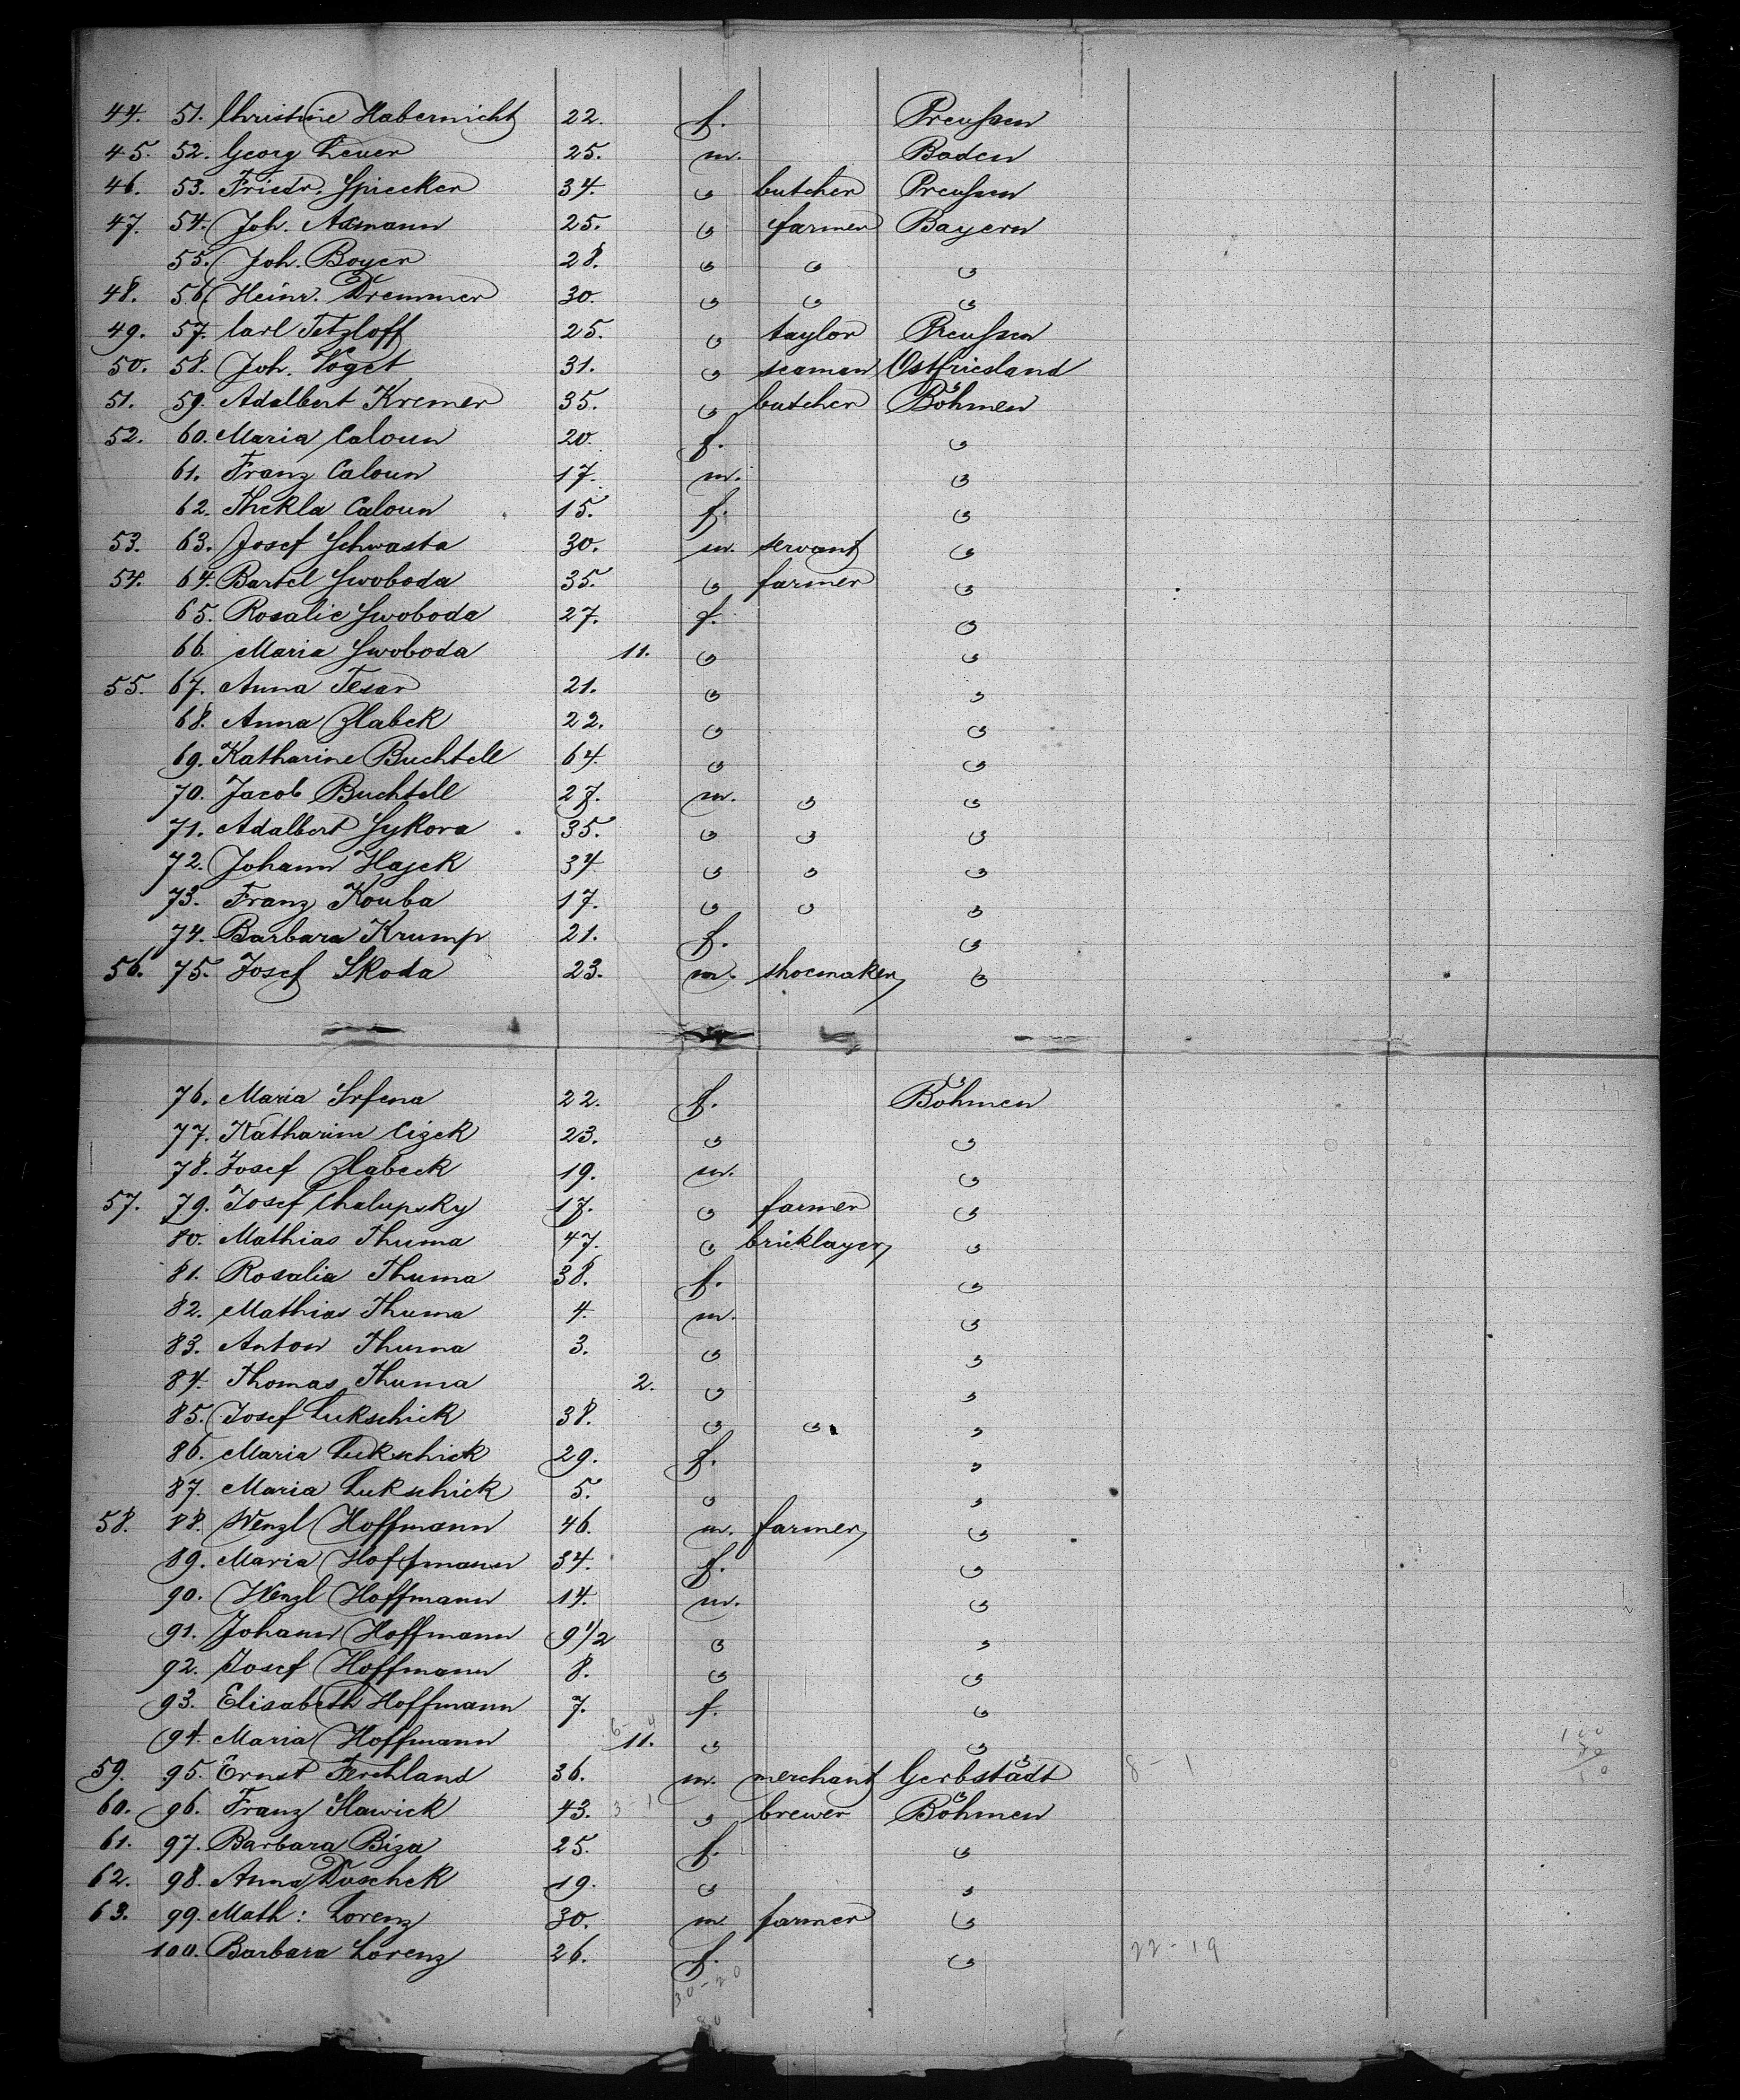 44. 51. Christine Habernicht 22. f. Preußen
45. 52. Georg Leuer 25. m. Baden
46. 53. Friedr. Spiecker 34. " butcher Preußen
47. 54. Joh. Asmann 25. " farmer Bayern
55. Joh. Boyer 28. " " "
48. 56. Heinr. Dremmer 30. " " "
49. 57. Carl Tetzloff 25. " taylor Preußen
50. 58. Joh. Voget 31. " seaman Ostfriesland
51. 59. Adalbert Kremer 35. " butcher Böhmen
52. 60. Maria Caloun 20. f. "
61. Franz Caloun 17. m. "
62. Thekla Caloun 15. f. "
53. 63. Josef Schwasta 30. m. servant "
54. 64. Bartel Swoboda 35. " farmer "
65. Rosalie Swoboda 27. f. "
66. Maria Swoboda 11. " "
55. 67. Anna Tesar 21. " "
68. Anna Zlabek 22. " "
69. Katharine Buchtell 64. " "
70. Jacob Buchtell 27. m. " "
71. Adalbert Sykora 35. " " "
72. Johann Hajek 34. " " "
73. Franz Kouba 17. " " "
74. Barbara Krump 21. f. "
56. 75. Josef Skoda 23. m. shoemaker "
76. Maria Srfena 22. f. Böhmen
77. Katharine Cizek 23. " "
78. Josef Zlabeck 19. m. "
57. 79. Josef Chalupsky 17. " farmer "
80. Mathias Thuma 47. " bricklayer "
81. Rosalia Thuma 38. f. "
82. Mathias Thuma 4. m. "
83. Anton Thuma 3. " "
84. Thomas Thuma 2. " "
85. Josef Lukschick 38. " " "
86. Maria Lukschick 29. f. "
87. Maria Lukschick 5. " "
58. 88. Wenzl Hoffmann 46. m. farmer "
89. Maria Hoffmann 34. f. "
90. Wenzl Hoffmann 14. m. "
91. Johann Hoffmann 9 1/2 " "
92. Josef Hoffmann 8. " "
93. Elisabeth Hoffmann 7. f. "
94. Maria Hoffmann 11. " "
59. 95. Ernst Ferchland 36. m. merchant Gerbstädt 8 - 1
60. 96. Franz Slawick 43. 3 - 1 " brewer Böhmen
61. 97. Barbara Biza 25. f. "
62. 98. Anna Duschek 19. " "
63. 99. Math: Lorenz 30. m. farmer "
100. Barbara Lorenz 26. f. " 22 - 19
30 - 20